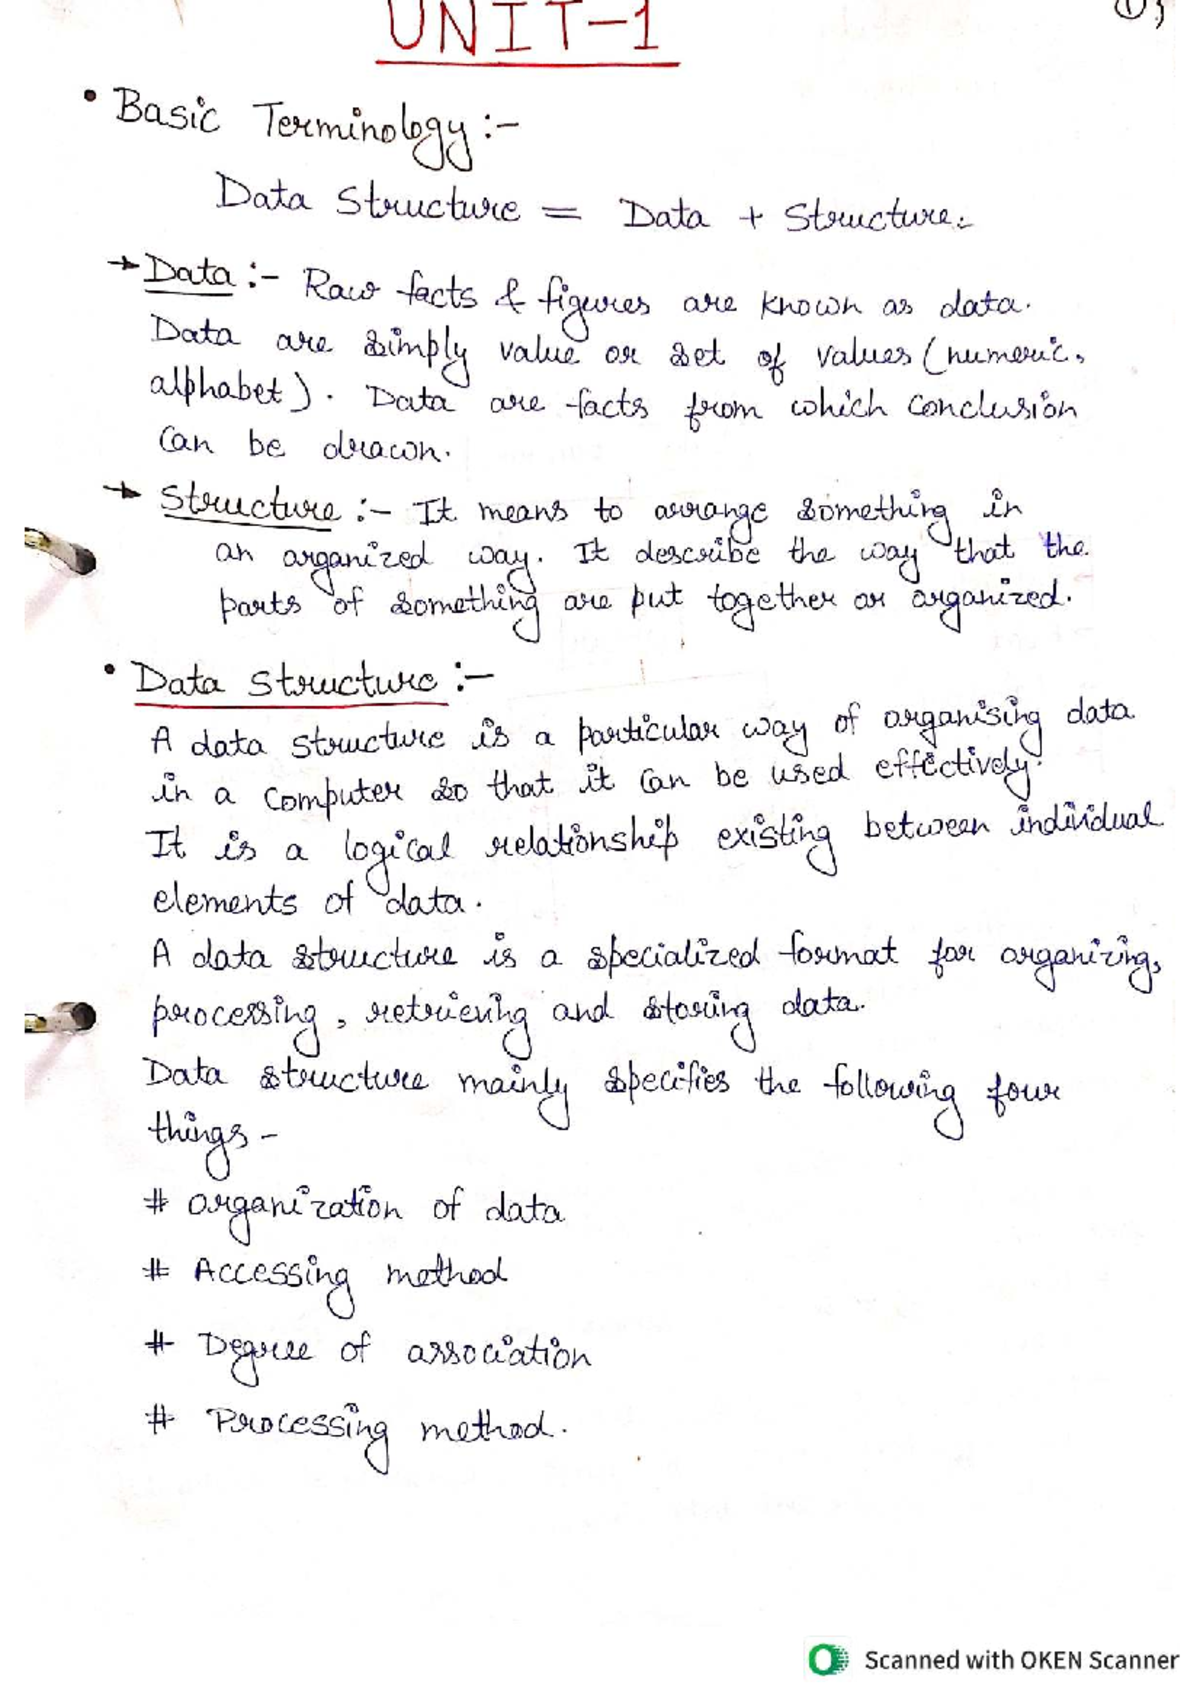 UNIT-1
• Basic Terminology :-
Data Structure = Data + Structure.
→ Data :- Raw facts & figures are known as data.
Data are simply value or set of values (numeric,
alphabet). Data are facts from which conclusion
can be drawn.
→ Structure :- It means to arrange something in
an organized way. It describe the way that the
parts of something are put together or organized.
• Data structure :-
A data structure is a particular way of organising data
in a computer so that it can be used effectively.
It is a logical relationship existing between individual
elements of data.
A data structure is a specialized format for organizing,
processing, retrieving and storing data.
Data structure mainly specifies the following four
things -
# Organization of data
# Accessing method
# Degree of association
# Processing method.
Scanned with OKEN Scanner